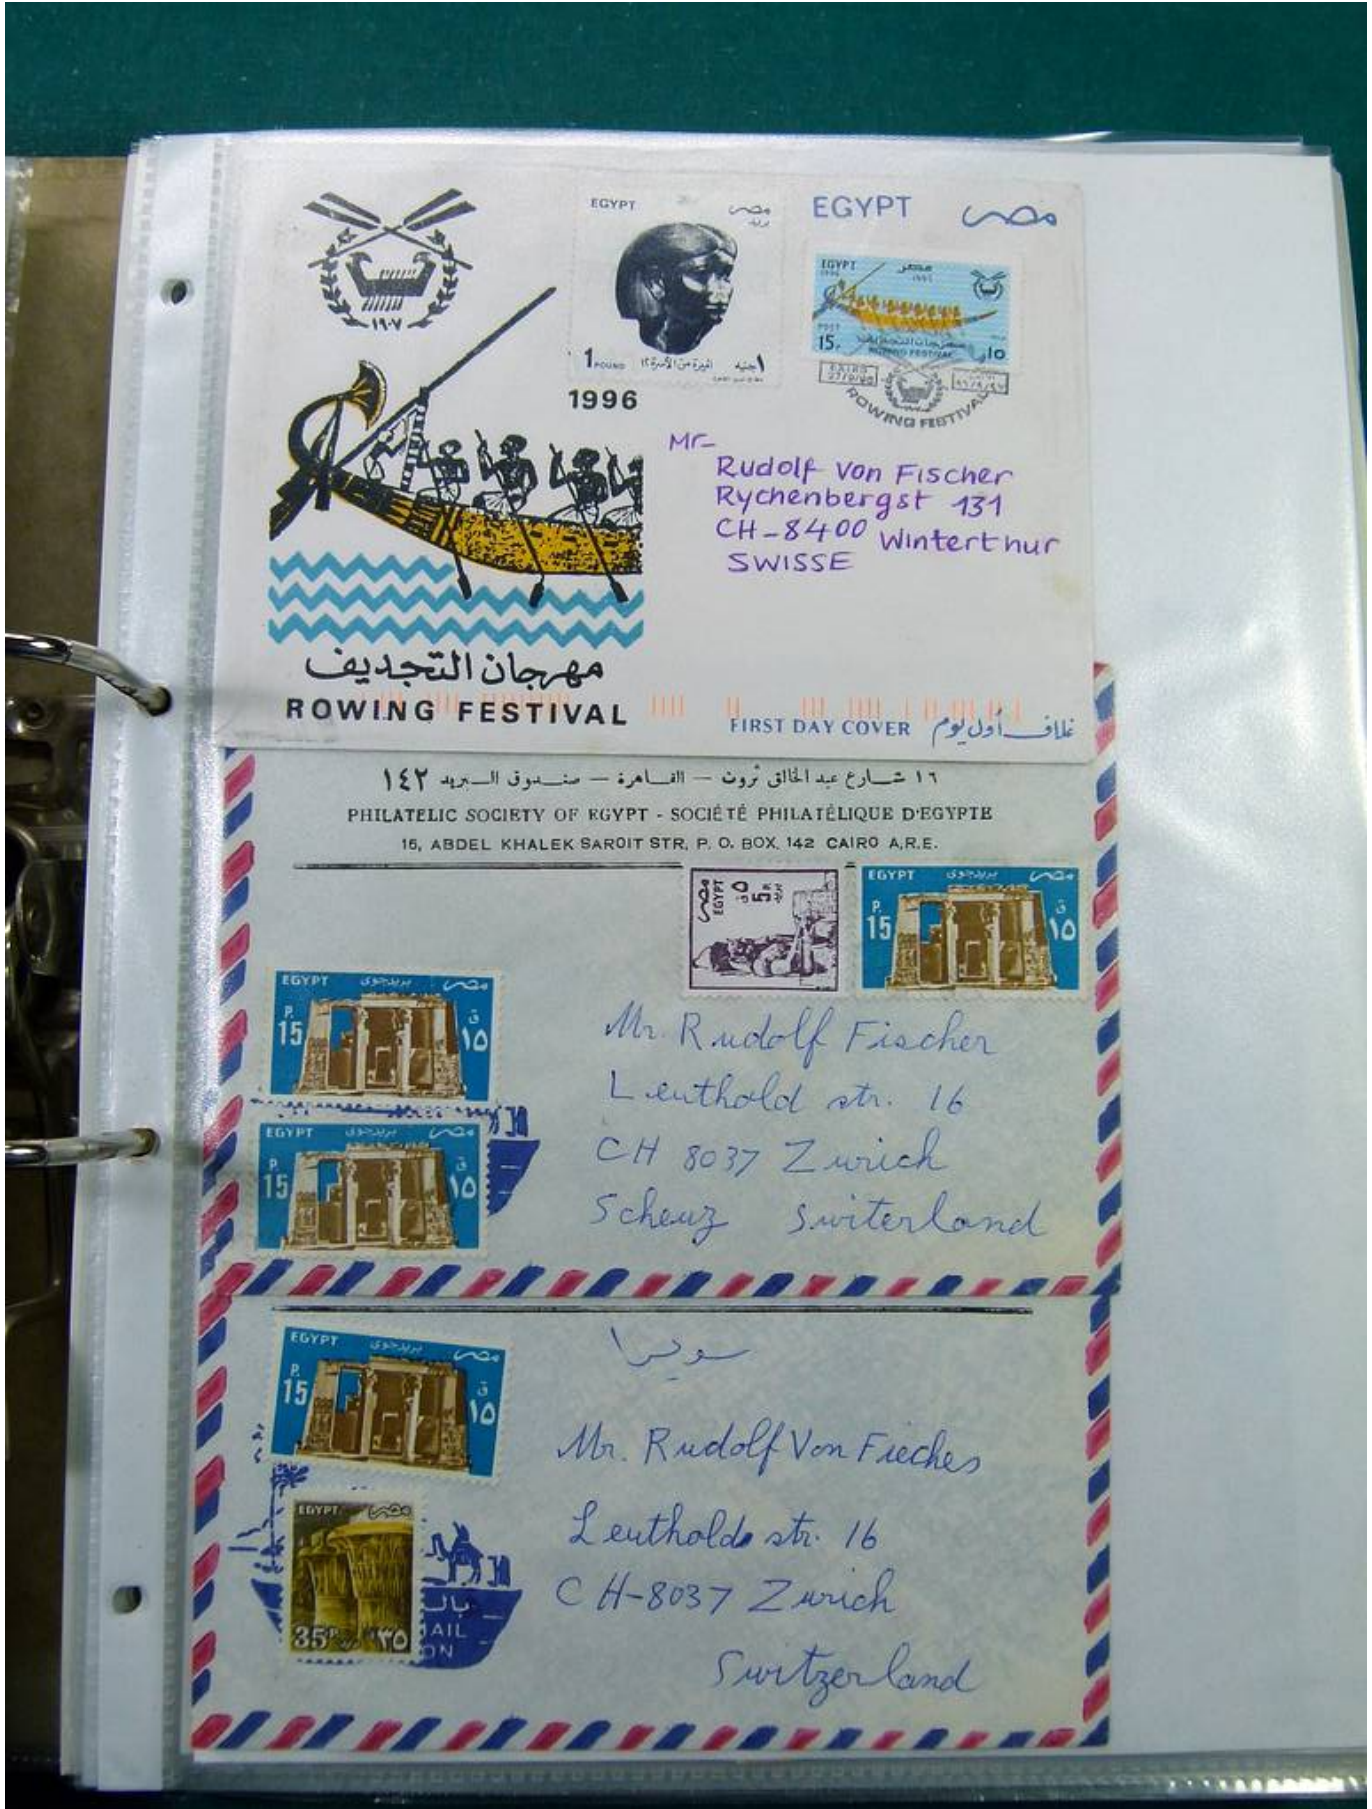 ١٩٠٧
EGYPT مصر
بريد
1 POUND ١ جنيه
1996
EGYPT مصر
EGYPT مصر
1996 1996
POST
15 P. ١٥
ROWING FESTIVAL
CAIRO
ROWING FESTIVAL
Mr-
Rudolf Von Fischer
Rychenbergst 131
CH-8400 Winterthur
SWISSE
مهرجان التجديف
ROWING FESTIVAL
FIRST DAY COVER غلاف أول يوم
١٦ شارع عبد الخالق ثروت — القاهرة — صندوق البريد ١٤٢
PHILATELIC SOCIETY OF EGYPT - SOCIÉTÉ PHILATÉLIQUE D'EGYPTE
16, ABDEL KHALEK SAROIT STR. P. O. BOX. 142 CAIRO A.R.E.
مصر ٥ ق بريد
EGYPT 5 P.
EGYPT بريد جوى مصر
P. 15 ق ١٥
EGYPT بريد جوى مصر
P. 15 ق ١٥
EGYPT بريد جوى مصر
P. 15 ق ١٥
Mr. Rudolf Fischer
Leuthold str. 16
CH 8037 Zurich
Scheuz Switerland
سويسرا
EGYPT بريد جوى مصر
P. 15 ق ١٥
Mr. Rudolf Von Fieches
Leutholds str. 16
CH-8037 Zurich
Switzerland
EGYPT مصر
35 P ٣٥
بالـ
AIL
ON